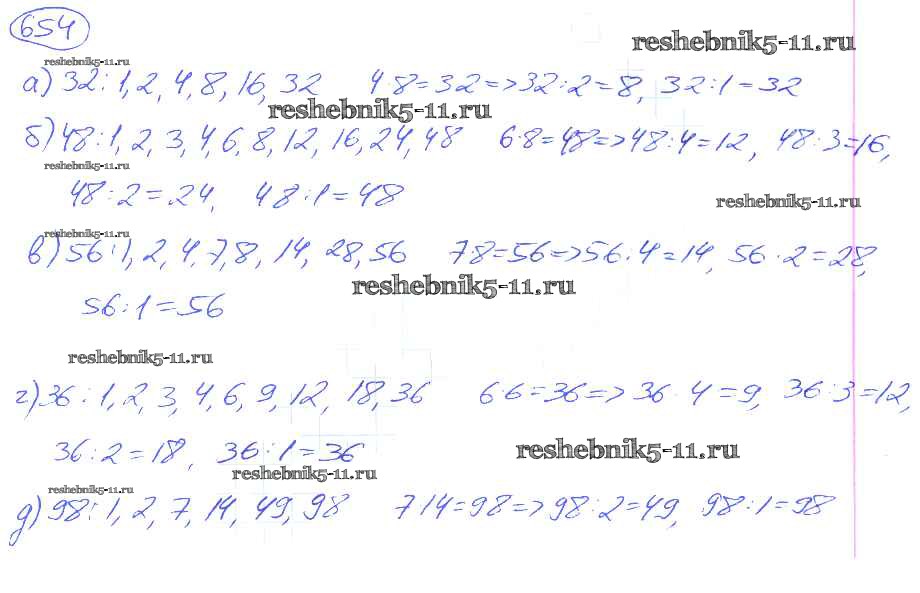 654
reshebnik5-11.ru
reshebnik5-11.ru
а) 32 : 1, 2, 4, 8, 16, 32 4·8=32=>32:2=8, 32:1=32
reshebnik5-11.ru
б) 48 : 1, 2, 3, 4, 6, 8, 12, 16, 24, 48 6·8=48=>48:4=12, 48:3=16,
reshebnik5-11.ru
48:2=24, 48:1=48
reshebnik5-11.ru
reshebnik5-11.ru
в) 56 : 1, 2, 4, 7, 8, 14, 28, 56 7·8=56=>56·4=14, 56·2=28,
reshebnik5-11.ru
56:1=56
reshebnik5-11.ru
г) 36 : 1, 2, 3, 4, 6, 9, 12, 18, 36 6·6=36=>36·4=9, 36:3=12,
36:2=18, 36:1=36
reshebnik5-11.ru
reshebnik5-11.ru
reshebnik5-11.ru
д) 98 : 1, 2, 7, 14, 49, 98 7 14=98=>98:2=49, 98:1=98